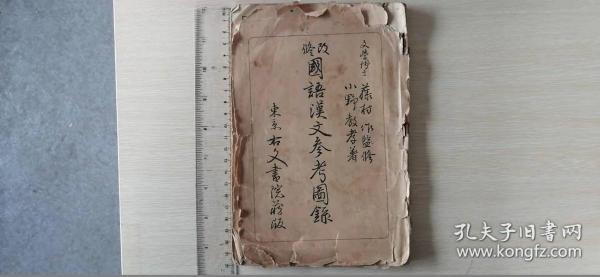 文學博士 藤村 作監修
小野教孝著
改修 國語漢文參考圖錄
東京 右文書院藏版
孔夫子旧书网
www.kongfz.com